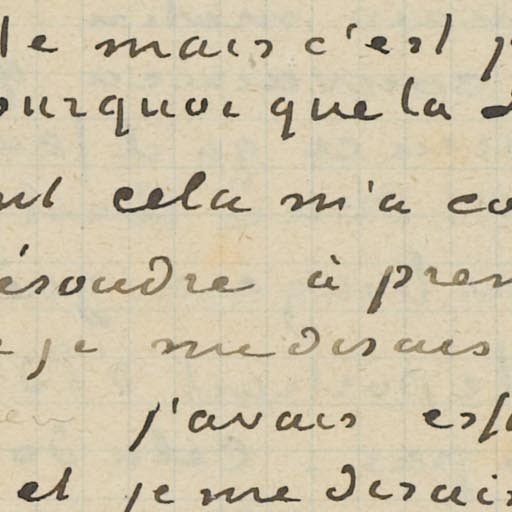 le mais c'est p
ourquoi que la
nt cela m'a co
ésoudre à pren
e je me disais
j'avais esp
et je me disais